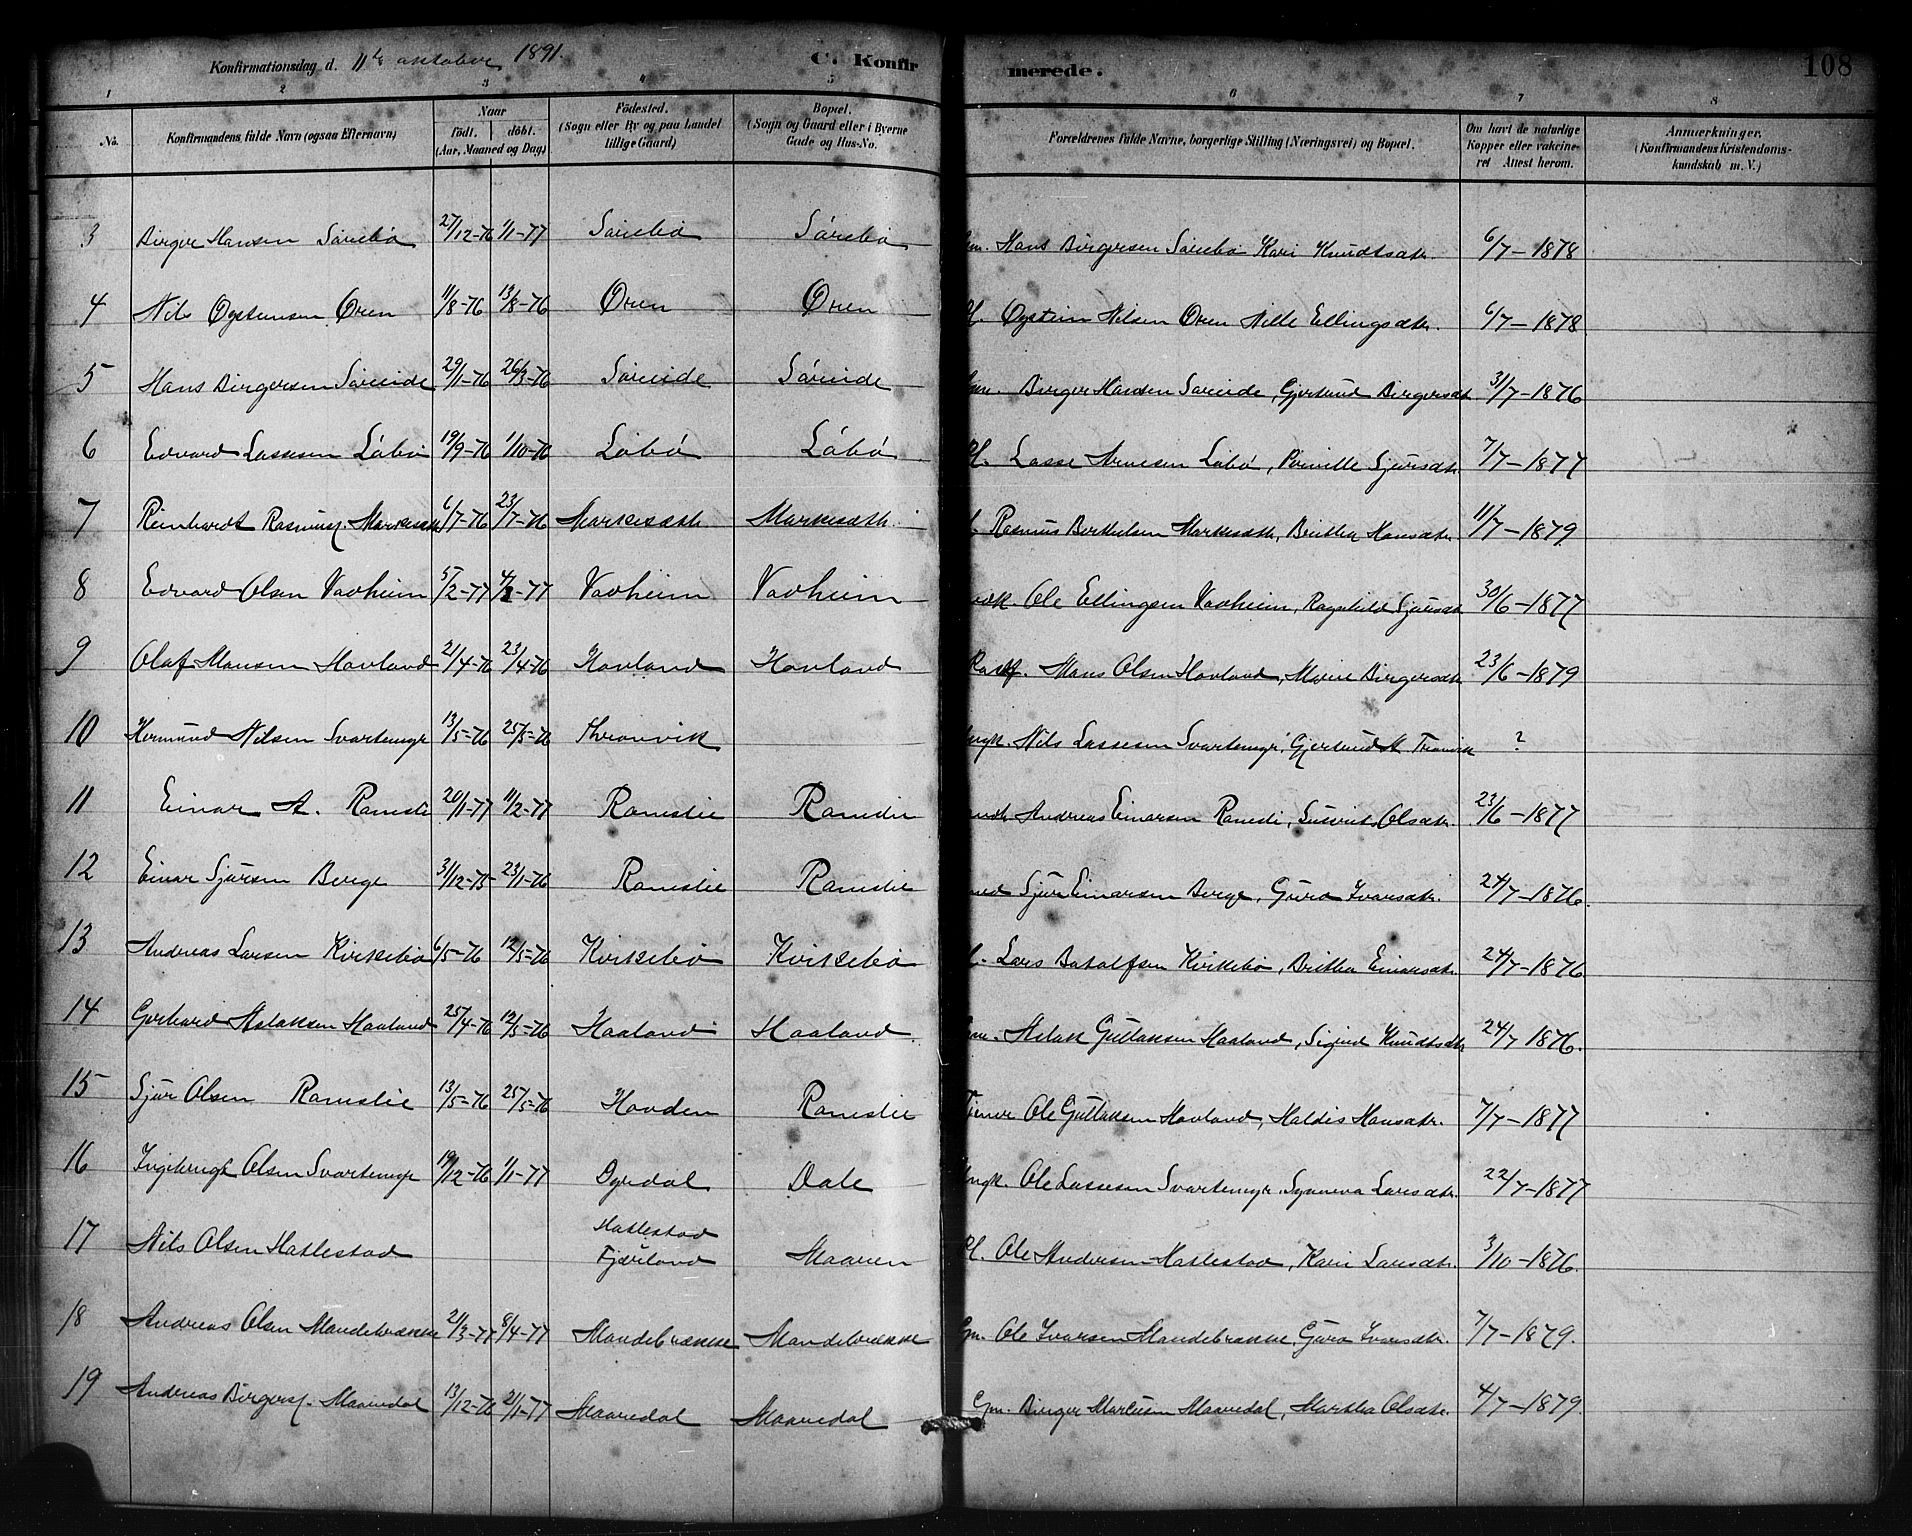 Konfirmationsdag d. 11te oktober 1891. C. Konfirmerede. 108
1 2 3 4 5 6 7 8
No. Konfirmandens fulde Navn (ogsaa Efternavn) Naar födt. döbt. (Aar, Maaned og Dag) Födested. (Sogn eller By og paa Landet tillige Gaard) Bopæl. (Sogn og Gaard eller i Byerne Gade og Hus-No. Forældrenes fulde Navne, borgerlige Stilling (Næringsvei) og Bopæl. Om havt de naturlige Kopper eller vakcineret Attest herom. Anmærkninger. (Konfirmandens Kristendomskundskab m. V.)
3 Birger Hansen Sørebø 27/12-76 1/1-77 Sørebø Sørebø Gm. Hans Birgersen Sørebø Kari Knudtsdtr. 6/7-1878
4 Nils Øystensen Øren 11/8-76 13/8-76 Øren Øren Pl. Øystein Nilsen Øren Nille Ellingsdtr. 6/7-1878
5 Hans Birgersen Søreide 29/1-76 26/3-76 Søreide Søreide Gm. Birger Hansen Søreide, Gjertrud Birgersdt 31/7-1876
6 Edvard Lassesen Løbø 19/9-76 1/10-76 Løbø Løbø Pl. Lasse Arnesen Løbø, Pernille Sjursdtr. 7/7-1877
7 Reinhardt Rasmuss. Markesæth 6/7-76 23/7-76 Markesæth Markesæth. Rasmus Berthelsen Markesæth, Brittha Hansdtr. 11/7-1879.
8 Edvard Olsen Vadheim 5/2-77 4/3-77 Vadheim Vadheim Ole Ellingsen Vadheim, Ragnhild Sjursdtr 30/6-1877
9 Olaf Hansen Hovland 21/4-76 23/4-76 Hovland Hovland Hans Olsen Hovland, Marie Birgersdtr 23/6-1879
10 Hermund Nilsen Svartemyr 13/5-76 25/5-76 Thronvik Ungk. Nils Lassesen Svartemyr, Gjertrud A Tronvik ?
11 Einar A. Ramsli 20/1-77 11/2-77 Ramslie Ramslie Andreas Einarsen Ramsli, Olsdtr. 23/6-1877
12 Einar Sjursen Berge 31/12-75 23/1-76 Ramslie Ramslie Sjur Einarsen Berge, Guro Ivarsdtr. 24/7-1876.
13 Andreas Larsen Kvikebø 6/5-76 12/5-76 Kvikebø Kvikebø Lars Botolfsen Kvikebø, Brittha Einarsdtr. 24/7-1876
14 Gerhard Aslaksen Haaland 25/4-76 Haaland Haaland. Gm. Aslak Gullaksen Haaland, Sigrid Knudtsdtr 24/7 1876.
15 Sjur Olsen Ramslie 13/5-76 25/5-76 Hovden Ramslie Tjener Ole Gullaksen Hovland, Haldis Hansdtr. 7/7-1877
16 Ingebrigt Olsen Svartemyr 19/12-76 1/1-77 Dyrdal Dale Ungk. Ole Lassesen Svartemyr, Synneva Larsdtr. 22/7-1877
17 Nils Olsen Hatlestad Hatlestad Fjærland Maaren Pl. Ole Andersen Hatlestad, Kari Larsdtr. 3/10-1876.
18 Andreas Olsen Mandebrække 21/3-77 8/4-77 Mandebrække Mandebrække Gm. Ole Ivarsen Mandebrække, Guro Ivarsdtr. 7/7-1879.
19 Andreas Birgers. Maaredal 13/12-76 21/1-77 Maaredal Maaredal Gm. Birger Maaredal, Martha Olsdtr. 4/7-1879.